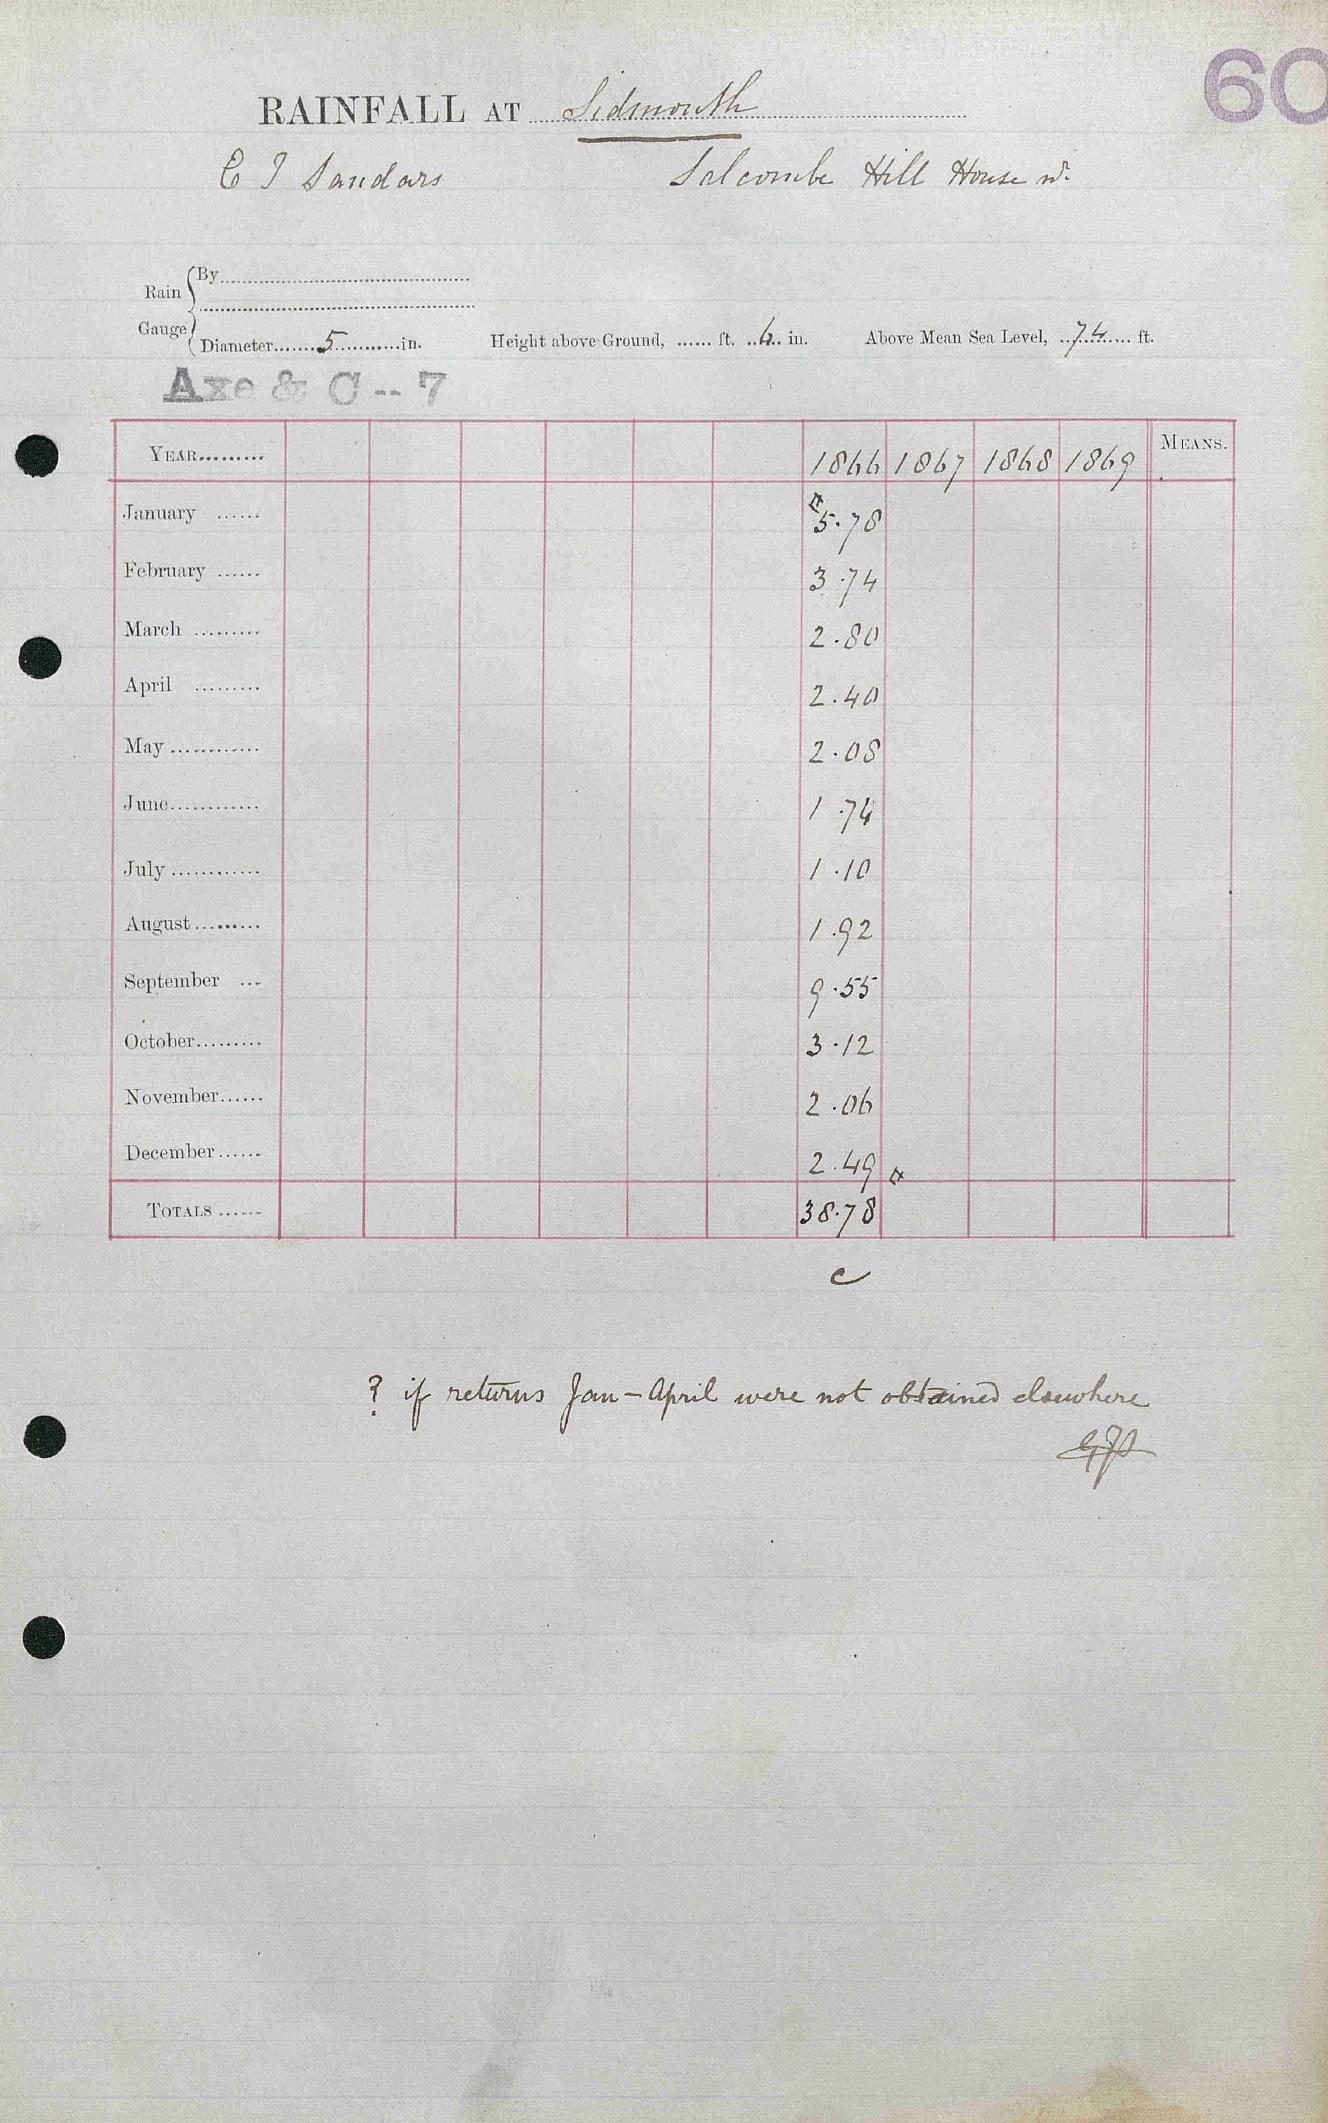 60
RAINFALL AT Sidmouth
E J Sandars Salcombe Hill House nr.
Rain Gauge { By
Diameter 5 in. Height above Ground, ...... ft. 6 in. Above Mean Sea Level, 74 ft.
Axe & C -- 7
YEAR......... 1866 1867 1868 1869 MEANS.
January ...... 5.78
February ...... 3.74
March ......... 2.80
April ......... 2.40
May ............ 2.08
June............ 1.74
July ............ 1.10
August ......... 1.92
September ... 9.55
October......... 3.12
November...... 2.06
December...... 2.49
TOTALS ...... 38.78
c
? if returns Jan - April were not obtained elsewhere